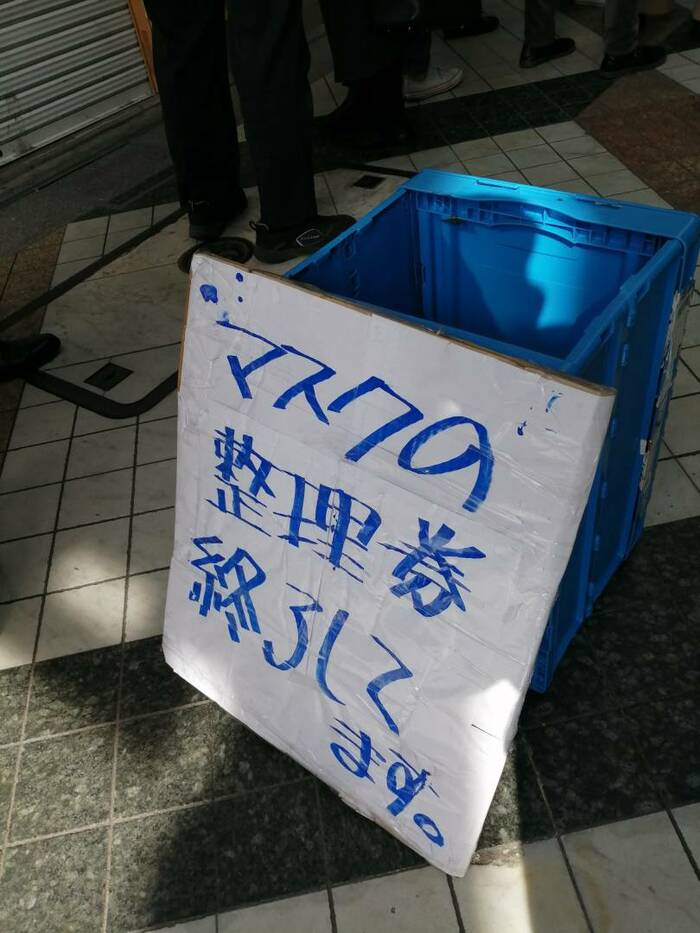 マスクの
整理券
終了して
ます。